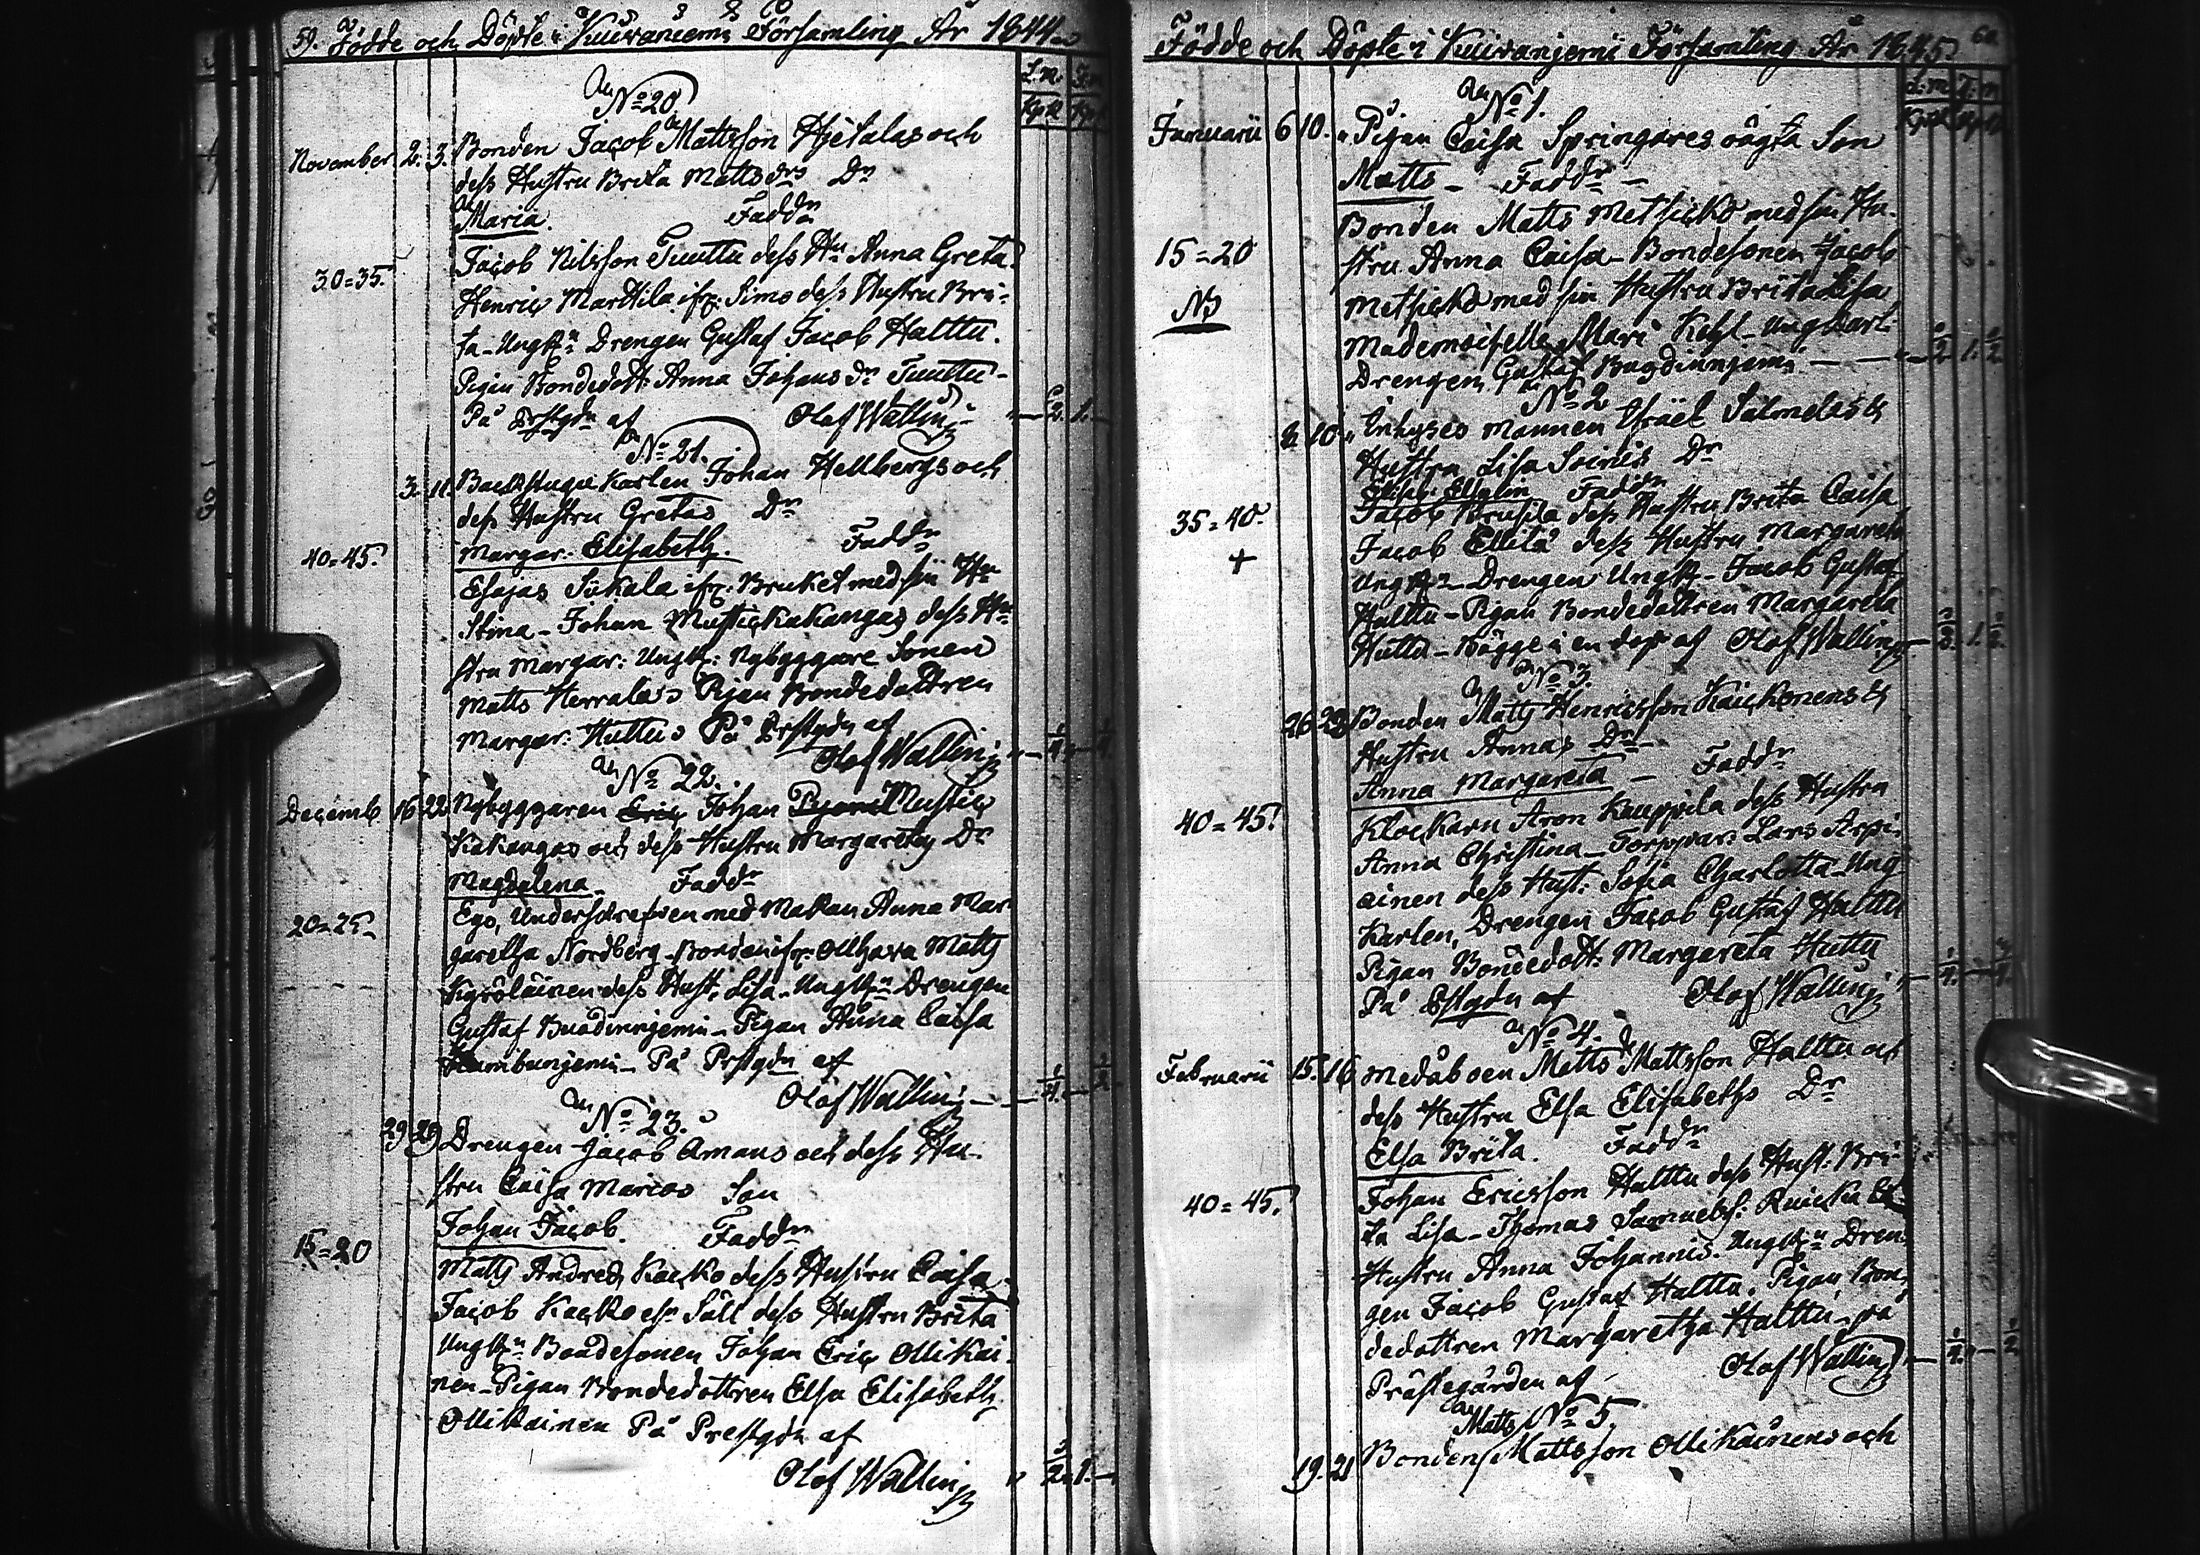 59. Födde och Döpte i Kuivaniemi Församling År 1844.
L.m. T.m
Kpr Kpr
No 20.
November 2. 3. Bonden Jacob Mattsson Hjetalas och
dess Hustru Brita Mattsdrs Dr
Maria. Faddr
30=35. Jacob Nilsson Tuuttu dess Hu Anna Greta.
Henric Marttila ifr. Simo dess Hustru Bri-
ta - Ungk: Drengen Gustaf Jacob Halttu.
Pigan Bondedott: Anna Johans dr Tuuttu -
På Prstgdn af Olof Wallin
No 21.
3. 11. Backstugu Karlen Johan Hellbergs och
dess Hustru Gretas Dr
Margar. Elisabeth. Faddr
40=45. Esajas Sukala ifr. Bruket med sin Hu
Stina - Johan Mustickakangas dess Hu-
stru Margar: Ungk: Nybyggare Sonen
Matts Herrala Pigan Bondedottren
Margar. Huttu På Prstgdn af
Olof Wallin
No 22.
Decemb 16 22. Nybyggaren Eric Johan Mustic
kakangas och dess Hustru Margarethas Dr
Magdalena Faddr
20=25. Ego, Underskrefwen med Makan Anna Mar-
garetha Nordberg - Bonden ifr. Olhava Matts
Kyröläinen dess Hust. Lisa - Ungk: Drengen
Gustaf Buddinnjemi - Pigan Anna Caisa
På Prstgdn af
Olof Wallin
No 23.
29 29 Drengen Jacob Amans och dess Hu-
stru Caisa Marias Son
Johan Jacob. Faddr
15=20 Matts Andred Kacko dess Hustru Caisa
Jacob Kacko dess Hustru Brita
Ungk: Bondesonen Johan Eric Ollikai-
nen - Pigan Bondedottren Elsa Elisabeth
Ollikainen På Prestgdn af
Olof Wallin
Födde och Döpte i Kuivanjemi Församling År 1845. 60
L.m T.m
No 1.
Januarii 6 10. Pigan Caisa Springares oägta Son
Matts - Faddr -
Bonden Matts Metsicko med sin Hu-
15=20 stru Anna Caisa - Bondesonen Jacob
NB Metsicko med sin Hustru Brita Lisa
Mademoiselle Mari Ungkarl.
Drengen Gustaf Buddinnjemi
No 2
10 Inhyses Mannen Israel Salmelas &
Hustru Lisa Soinis Dr
Faddr
35=40. Jacob dess Hustru Brita Caisa
Jacob Ellilä dess Hustru Margareta
Ungk: Drengen Jacob Gustaf
Halttu - Pigan Bondedottren Margareta
Huttu - Bägge i en dop af Olof Wallin
No 3.
26 28 Bonden Matts Henricsson Kaickonens &
Hustru Annas Dr -
Anna Margareta - Faddr
40=45. Klockarn Aron Kauppila dess Hustru
Anna Christina - Torppar: Lars Arpi-
ainen dess Hust: Sofia Charlotta - Ung
Karlen, Drengen Jacob Gustaf Halttu
Pigan Bondedott: Margareta Huttu
På Pstgdn af Olof Wallin
No 4.
Februarii 15. 16 Medåboen Matts Mattsson Halttu och
dess Hustru Elsa Elisabeths Dr
Elsa Brita. Faddr
40=45. Johan Ericsson Halttu dess Hust: Bri-
ta Lisa - Thomas Samuelss: &
Hustru Anna Johannis. Ungk: Dren-
gen Jacob Gustaf Halttu, Pigan, Bon-
dedottren Margaretha Halttu - på
Prästegården af Olof Wallin
No 5.
19. 21 Bonden Matts Mattsson Ollikainens och